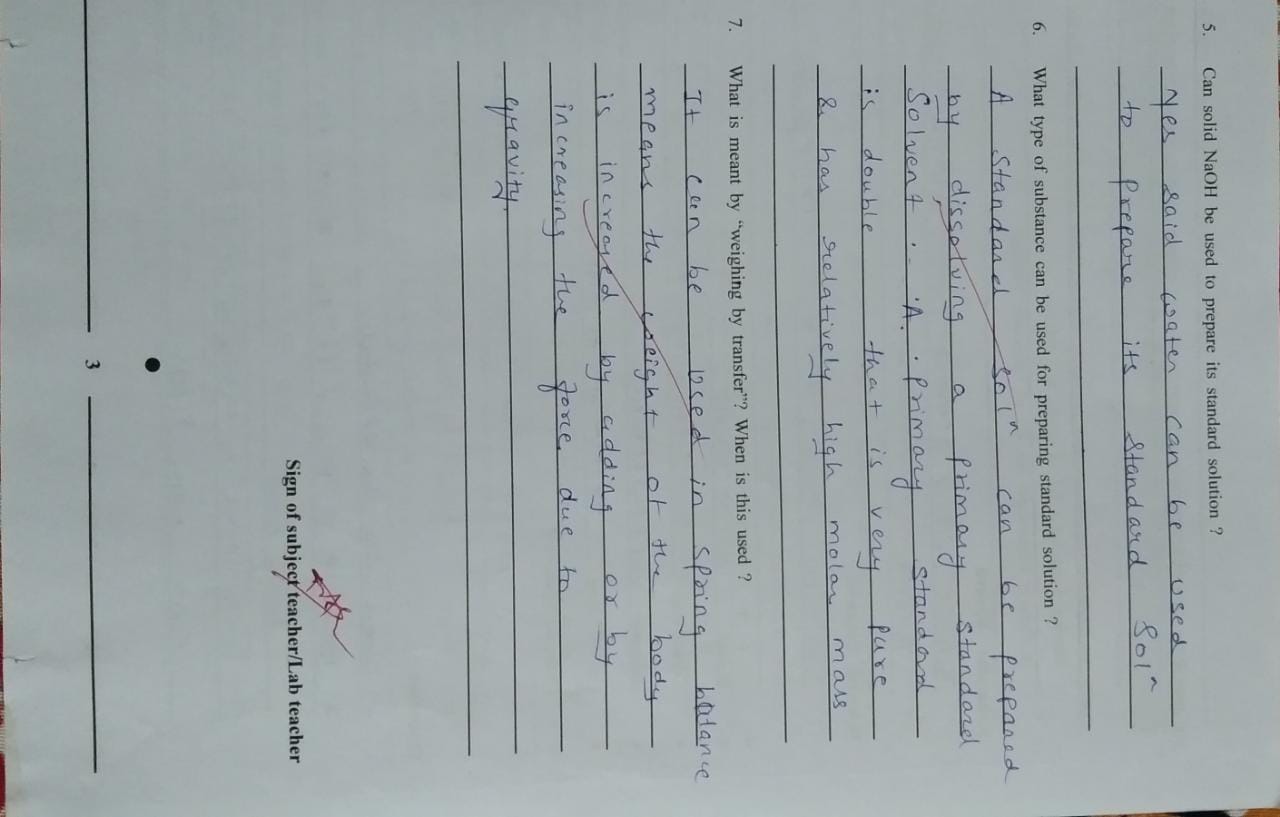 5. Can solid NaOH be used to prepare its standard solution ?
Yes said water can be used
to prepare its standard solⁿ
6. What type of substance can be used for preparing standard solution ?
A standard solⁿ can be prepared
by dissolving a primary standard
Solvent . . . A. . primary standard
is double that is very pure
& has relatively high molar mass
7. What is meant by “weighing by transfer”? When is this used ?
It can be used in spring balance
means the weight of the body
is increased by adding or by
increasing the force due to
gravity.
Sign of subject teacher/Lab teacher
3